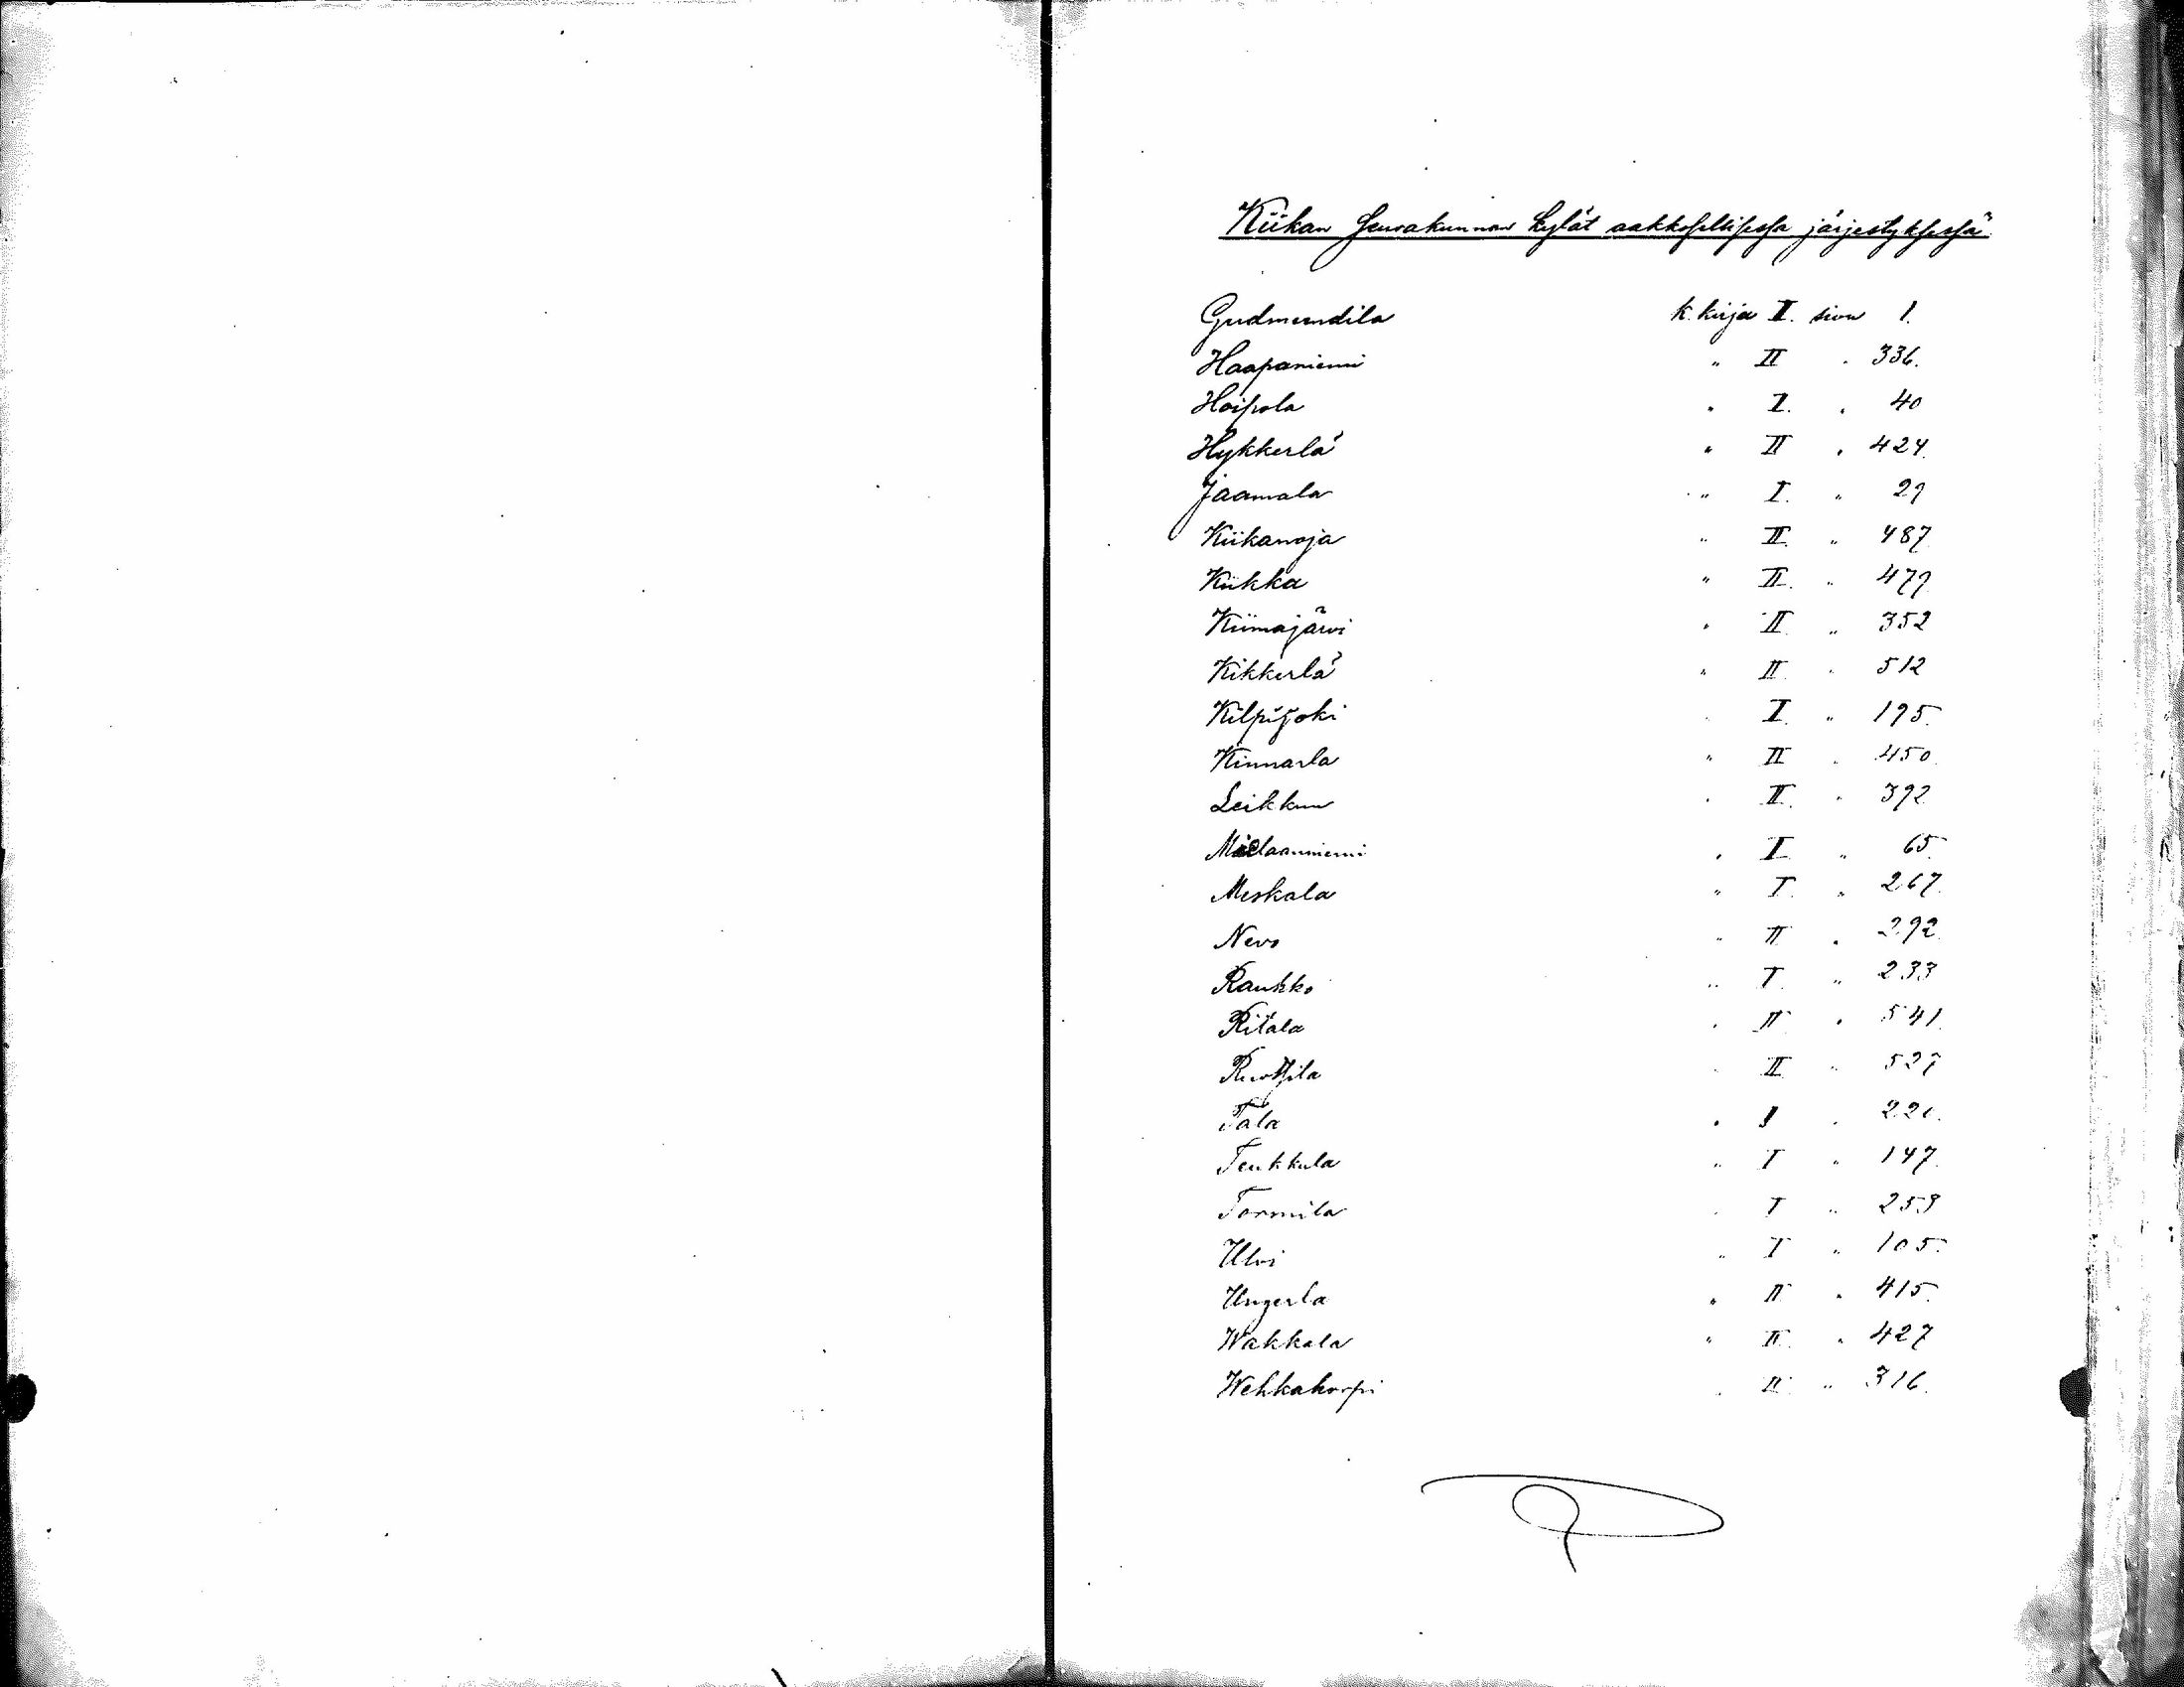 Kiikan seurakunnan kylät aakkosellisessa järjestyksessä.
Gudmundila k. kirja I. sivu 1.
Haapaniemi " II " 336.
Hoipola " I. " 40
Hykkerlä " II " 424.
Jaamala " I. " 29
Kiikanoja " II " 487
Kiikka " II. " 479
Kiimajärvi " II " 352
Kikkerlä " II " 512
Kilpijoki " I " 195.
Kinnarla " II " 450
Leikkuu " II. " 392
Mielaanniemi " I " 65.
Meskala " I. " 267.
Nevo " II " 292.
Raukko " I " 233
Ritala " II " 541.
Ruotsila II " 527
Tala " I "
Teukkula " I " 147.
Tormila " I " 253
Ulvi " I " 105.
Ungerla " II " 415.
Wakkala " II. " 427
Wehkakorpi " II " 316.